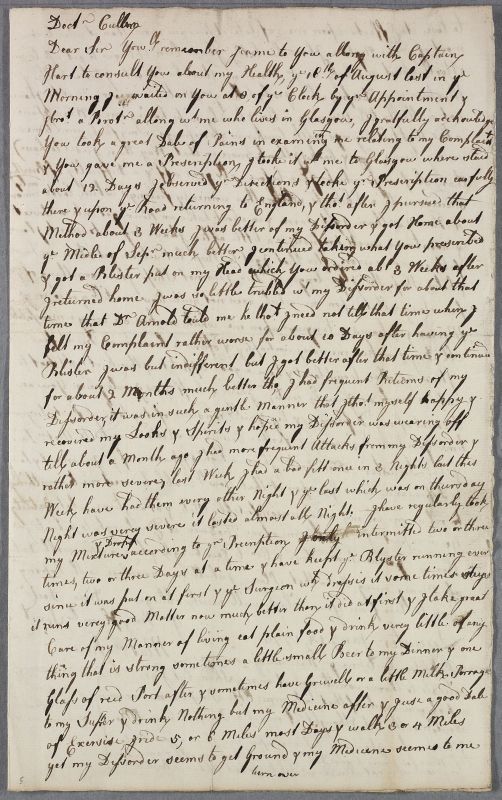 Doctr Cullen
Dear Sir You'll remember I came to You allong with Captain
Hart to consult You about my Health, ye 18th of August last in ye
Morning I waited on You at 8 of ye Clock by yr Appointment &
Brot a Brothr allong wt me who lives in Glasgow, I gratfully acknowledge
You took a great Dale of Pains in examining me relating to my Complaint
& You gave me a Prescription I took it wt me to Glasgow where staid
about 12 Days I observed yr Directions & tooke yr Prescription carfully
there & upon ye Road returning to England, & tho' after I pursued that
Method about 3 Weeks I was better of my Disorder & got Home about
ye Midle of Sepr much better I continued taking what You prescribed
& got a Blister put on my Head which You ordered abt 3 Weeks after
I returned home I was so little trubled wt my Disorder for about that
time that Dr Arnold told me he thot I need not tell that time when I
my Complaint rather worse for about 10 Days after having ye
Blister I was but indifferent but I got better after that time & continued
for about 2 Months much better tho' I had frequent Returns of my
Disorder, it was in such a gentle Manner that I thot myself happy &
recovered my Looks & Spirits & hoped my Disorder was wearing off
till about a Month ago I had more frequent Attacks from my Disorder &
rather more severe, last Week I had a bad fitt one in 3 Nights but this
Week have had them every other Night & ye last which was on thursday
Night was very severe it lasted almost all Night. I have regularly took
my Mixture & Drops according to yr Precription I only intermitt two or three
times, two or three Days at a time & have keept ye Blyster running ever
since it was put on at first & ye Surgeon wh dresses it some times says
it runs very good Matter now much better than it did at first & I take great
Care of my Manner of living eat plain food & drink very little of any
thing that is strong sometimes a little small Beer to my Dinner & one
Glass of reed Port after & sometimes have Grewell or a little Milk Porrage
to my Supper & drink Nothing but my Medicine after & I use a good Dale
of Exersise I ride 5, or 6 Miles most Days & walk 3 or 4 Miles
yet my Disorder seems to get Ground & my Medicine seemes to me
turn over